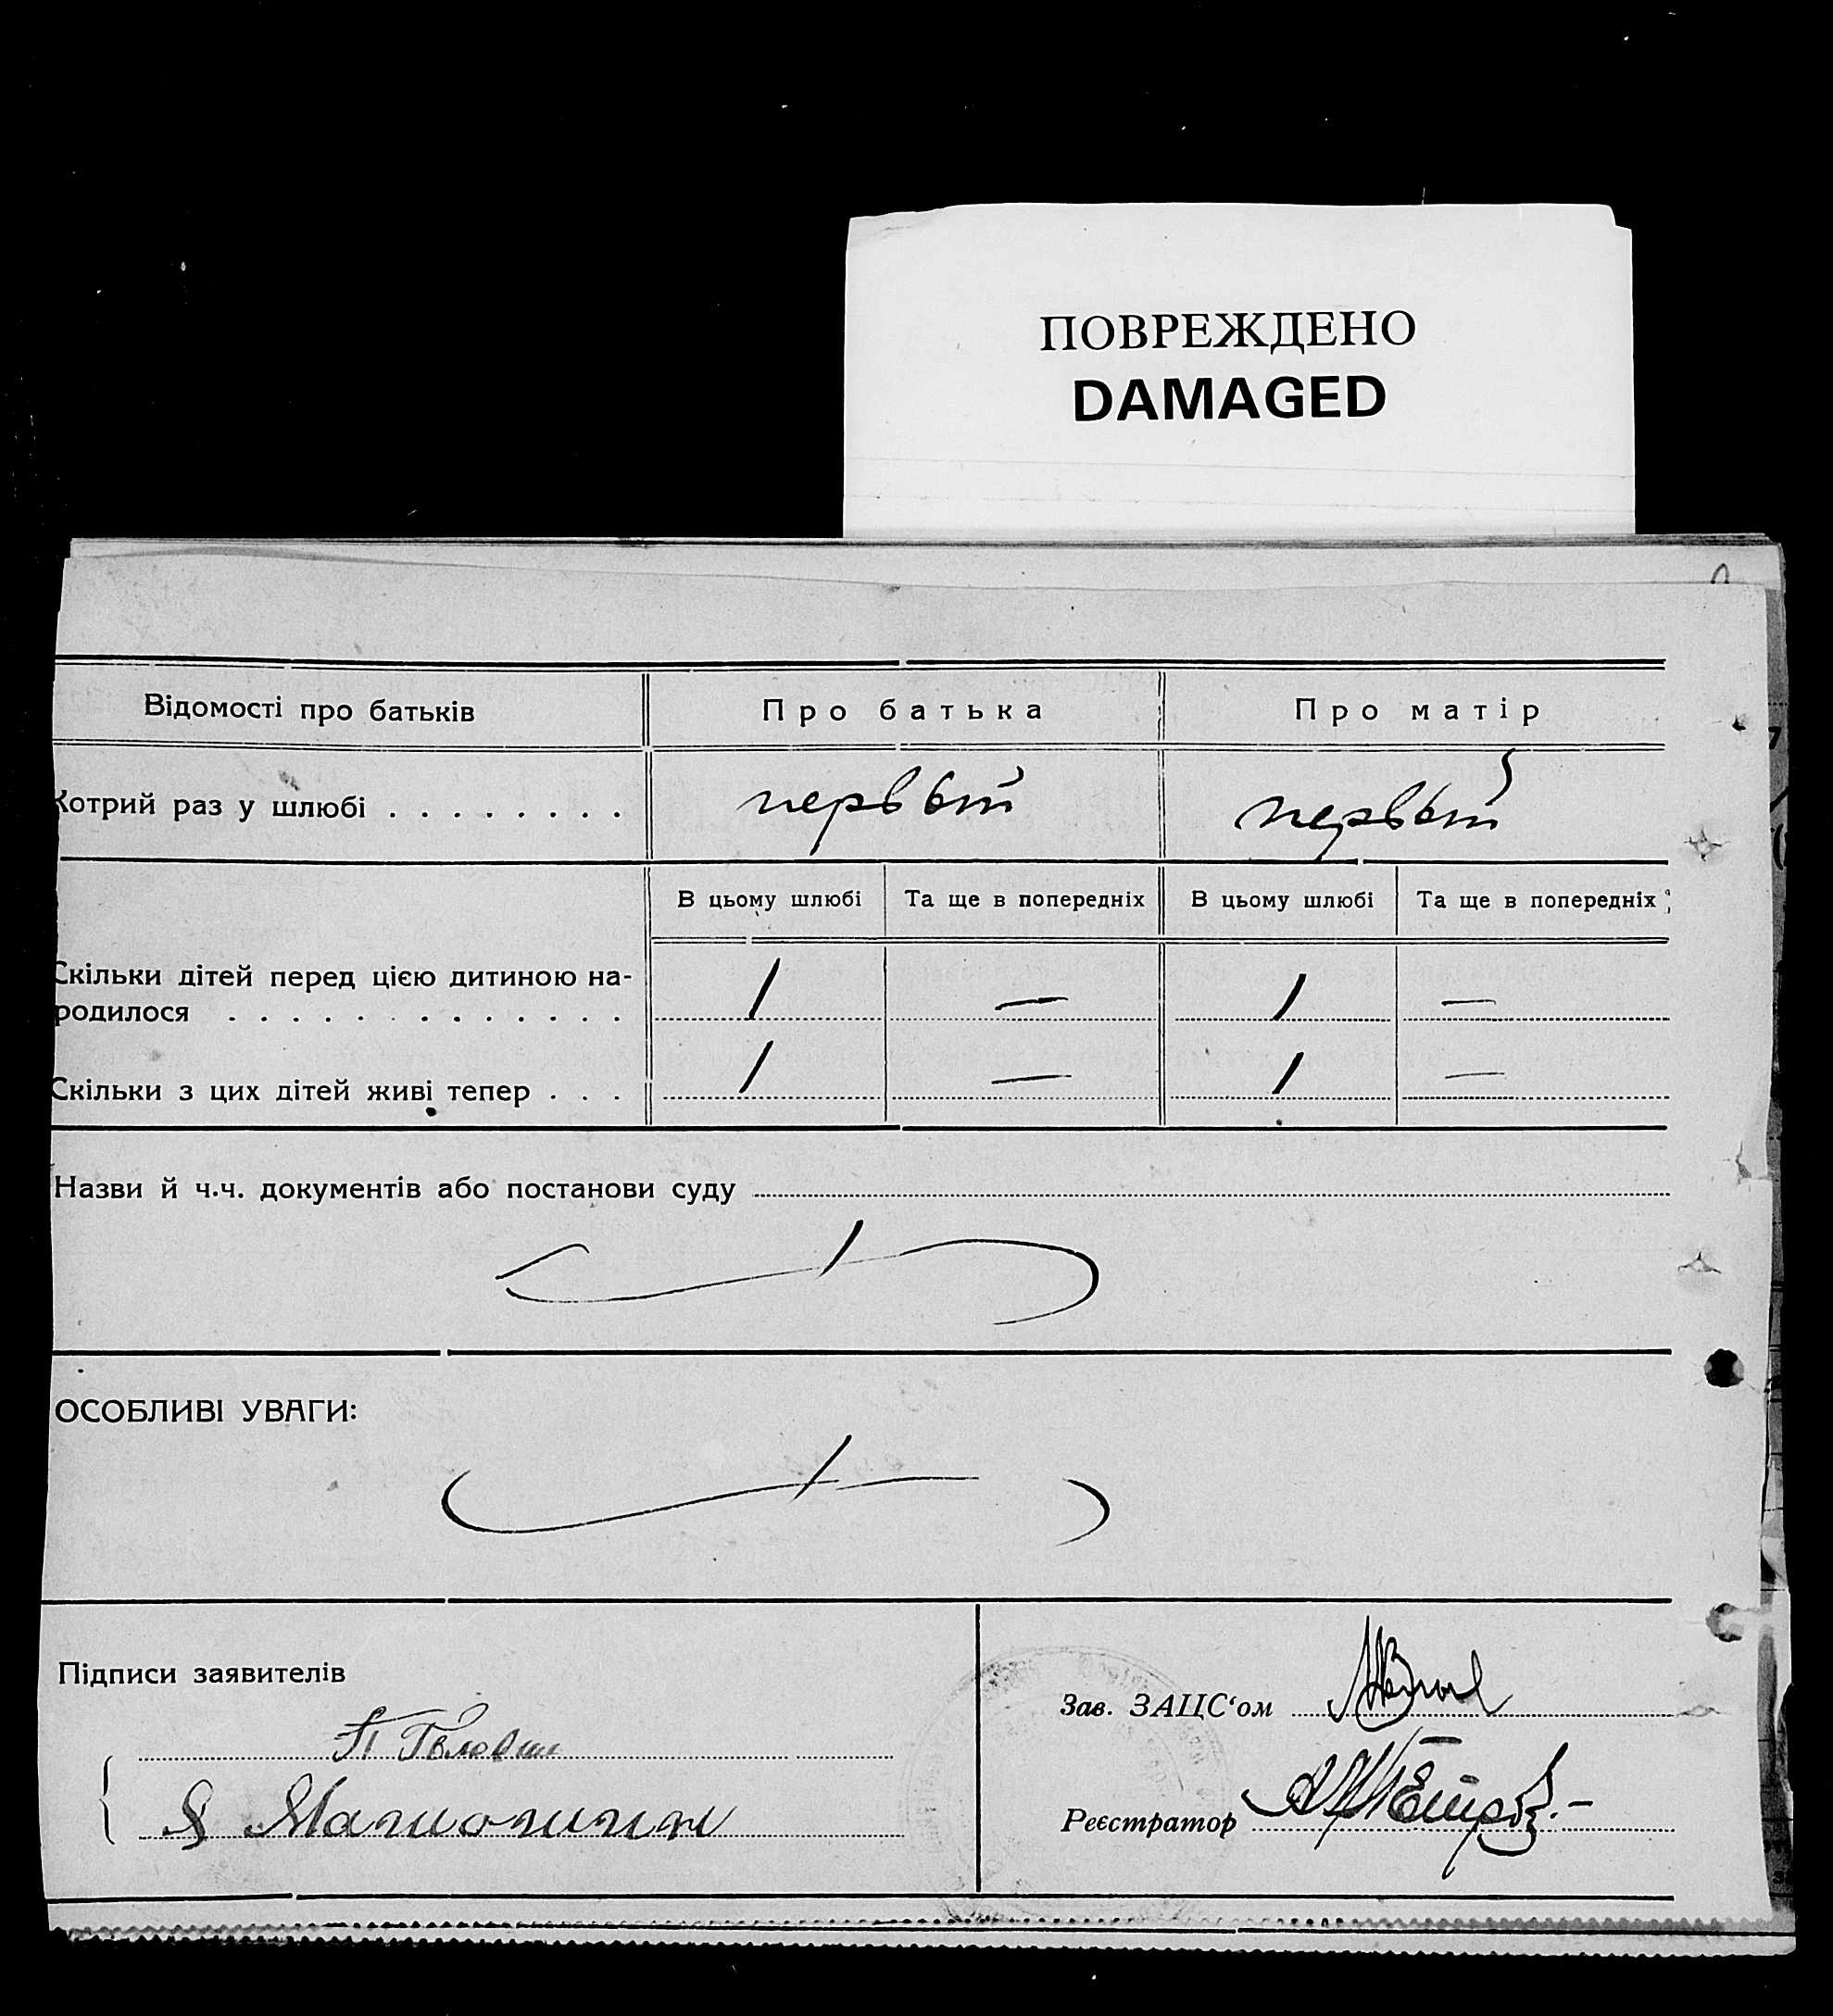 ПОВРЕЖДЕНО
DAMAGED
Відомості про батьків Про батька Про матір
Котрий раз у шлюбі . . . . . . . . первый первый
В цьому шлюбі Та ще в попередніх В цьому шлюбі Та ще в попередніх
Скільки дітей перед цією дитиною на-
родилося . . . . . . . . . . . . . 1 — 1 —
Скільки з цих дітей живі тепер . . . 1 — 1 —
Назви й ч.ч. документів або постанови суду
ОСОБЛИВІ УВАГИ:
Підписи заявителів
Зав. ЗАЦС‘ом
Реєстратор